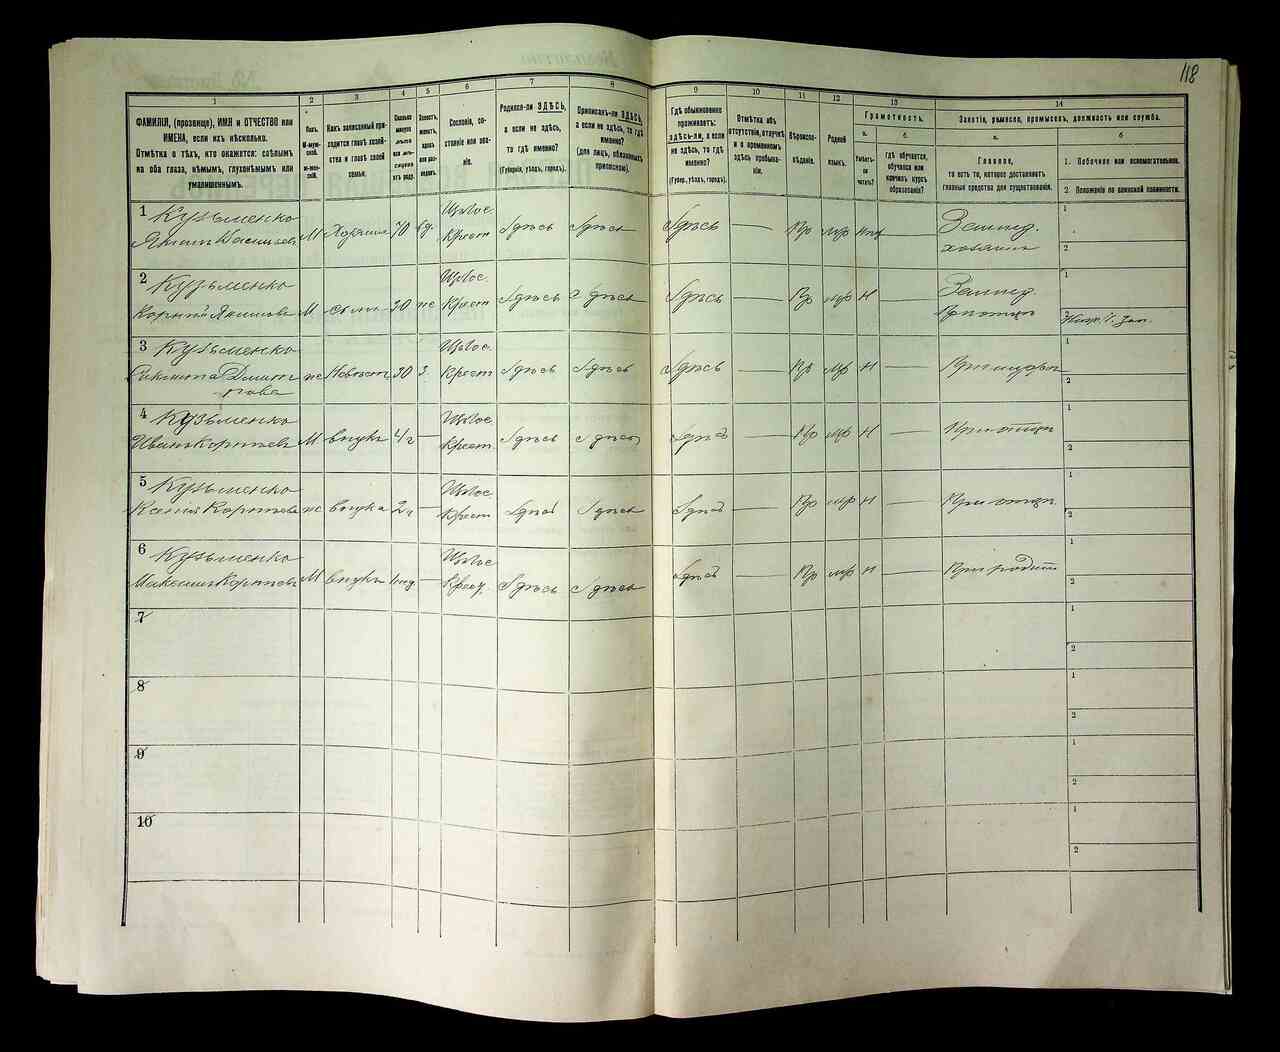 118
1
ФАМИЛІЯ, (прозвище), ИМЯ и ОТЧЕСТВО или
ИМЕНА, если ихъ нѣсколько.
Отмѣтка о тѣхъ, кто окажется: слѣпымъ
на оба глаза, нѣмымъ, глухонѣмымъ или
умалишеннымъ.
2
Полъ.
М-муж-
ской.
Ж-жен-
скій.
3
Какъ записанный при-
ходится главѣ хозяй-
ства и главѣ своей
семьи.
4
Сколько
минуло
лѣтъ
или мѣ-
сяцевъ
отъ роду.
5
Холостъ,
женатъ,
вдовъ
или раз-
веденъ.
6
Сословіе, со-
стояніе или зва-
ніе.
7
Родился-ли ЗДѢСЬ,
а если не здѣсь,
то гдѣ именно?
(Губернія, уѣздъ, городъ).
8
Приписанъ-ли ЗДѢСЬ,
а если не здѣсь, то гдѣ
именно?
(для лицъ, обязанныхъ
припискою).
9
Гдѣ обыкновенно
проживаетъ:
ЗДѢСЬ-ЛИ, а если
не здѣсь, то гдѣ
именно?
(Губер., уѣздъ, городъ).
10
Отмѣтка объ
отсутствіи, отлучкѣ
и о временномъ
здѣсь пребыва-
ніи.
11
Вѣроиспо-
вѣданіе.
12
Родной
языкъ.
13
Грамотность.
а.
Умѣетъ-
ли
читать?
б.
Гдѣ обучается,
обучался или
кончилъ курсъ
образованія?
14
Занятіе, ремесло, промыселъ, должность или служба.
а.
Главное,
то есть то, которое доставляетъ
главныя средства для существованія.
б
1. Побочное или вспомогательное.
2. Положеніе по воинской повинности.
1
Кузьменко
М Хозяинъ 70 вд.
Крест
Здѣсь Здѣсь Здѣсь — Пр мр —
Землед.
хозяинъ
1
2
2
Кузьменко
М сынъ 30 ж
Крест
Здѣсь Здѣсь Здѣсь — Пр мр Н —
Землед.
1
2
3
Кузьменко
ж Невѣст 30 З
Крест
Здѣсь Здѣсь Здѣсь — Пр мр Н —
1
2
4
Кузьменко
М внукъ 4 г —
Крест.
Здѣсь Здѣсь Здѣсь — Пр мр Н —
При отцѣ
1
2
5
Кузьменко
ж внучка 2 г —
Крест
Здѣсь Здѣсь Здѣсь — Пр мр Н —
При отцѣ
1
2
6
Кузьменко
М внукъ —
Крест.
Здѣсь Здѣсь Здѣсь — Пр мр Н —
При родит
1
2
7
1
2
8
1
2
9
1
2
10
1
2